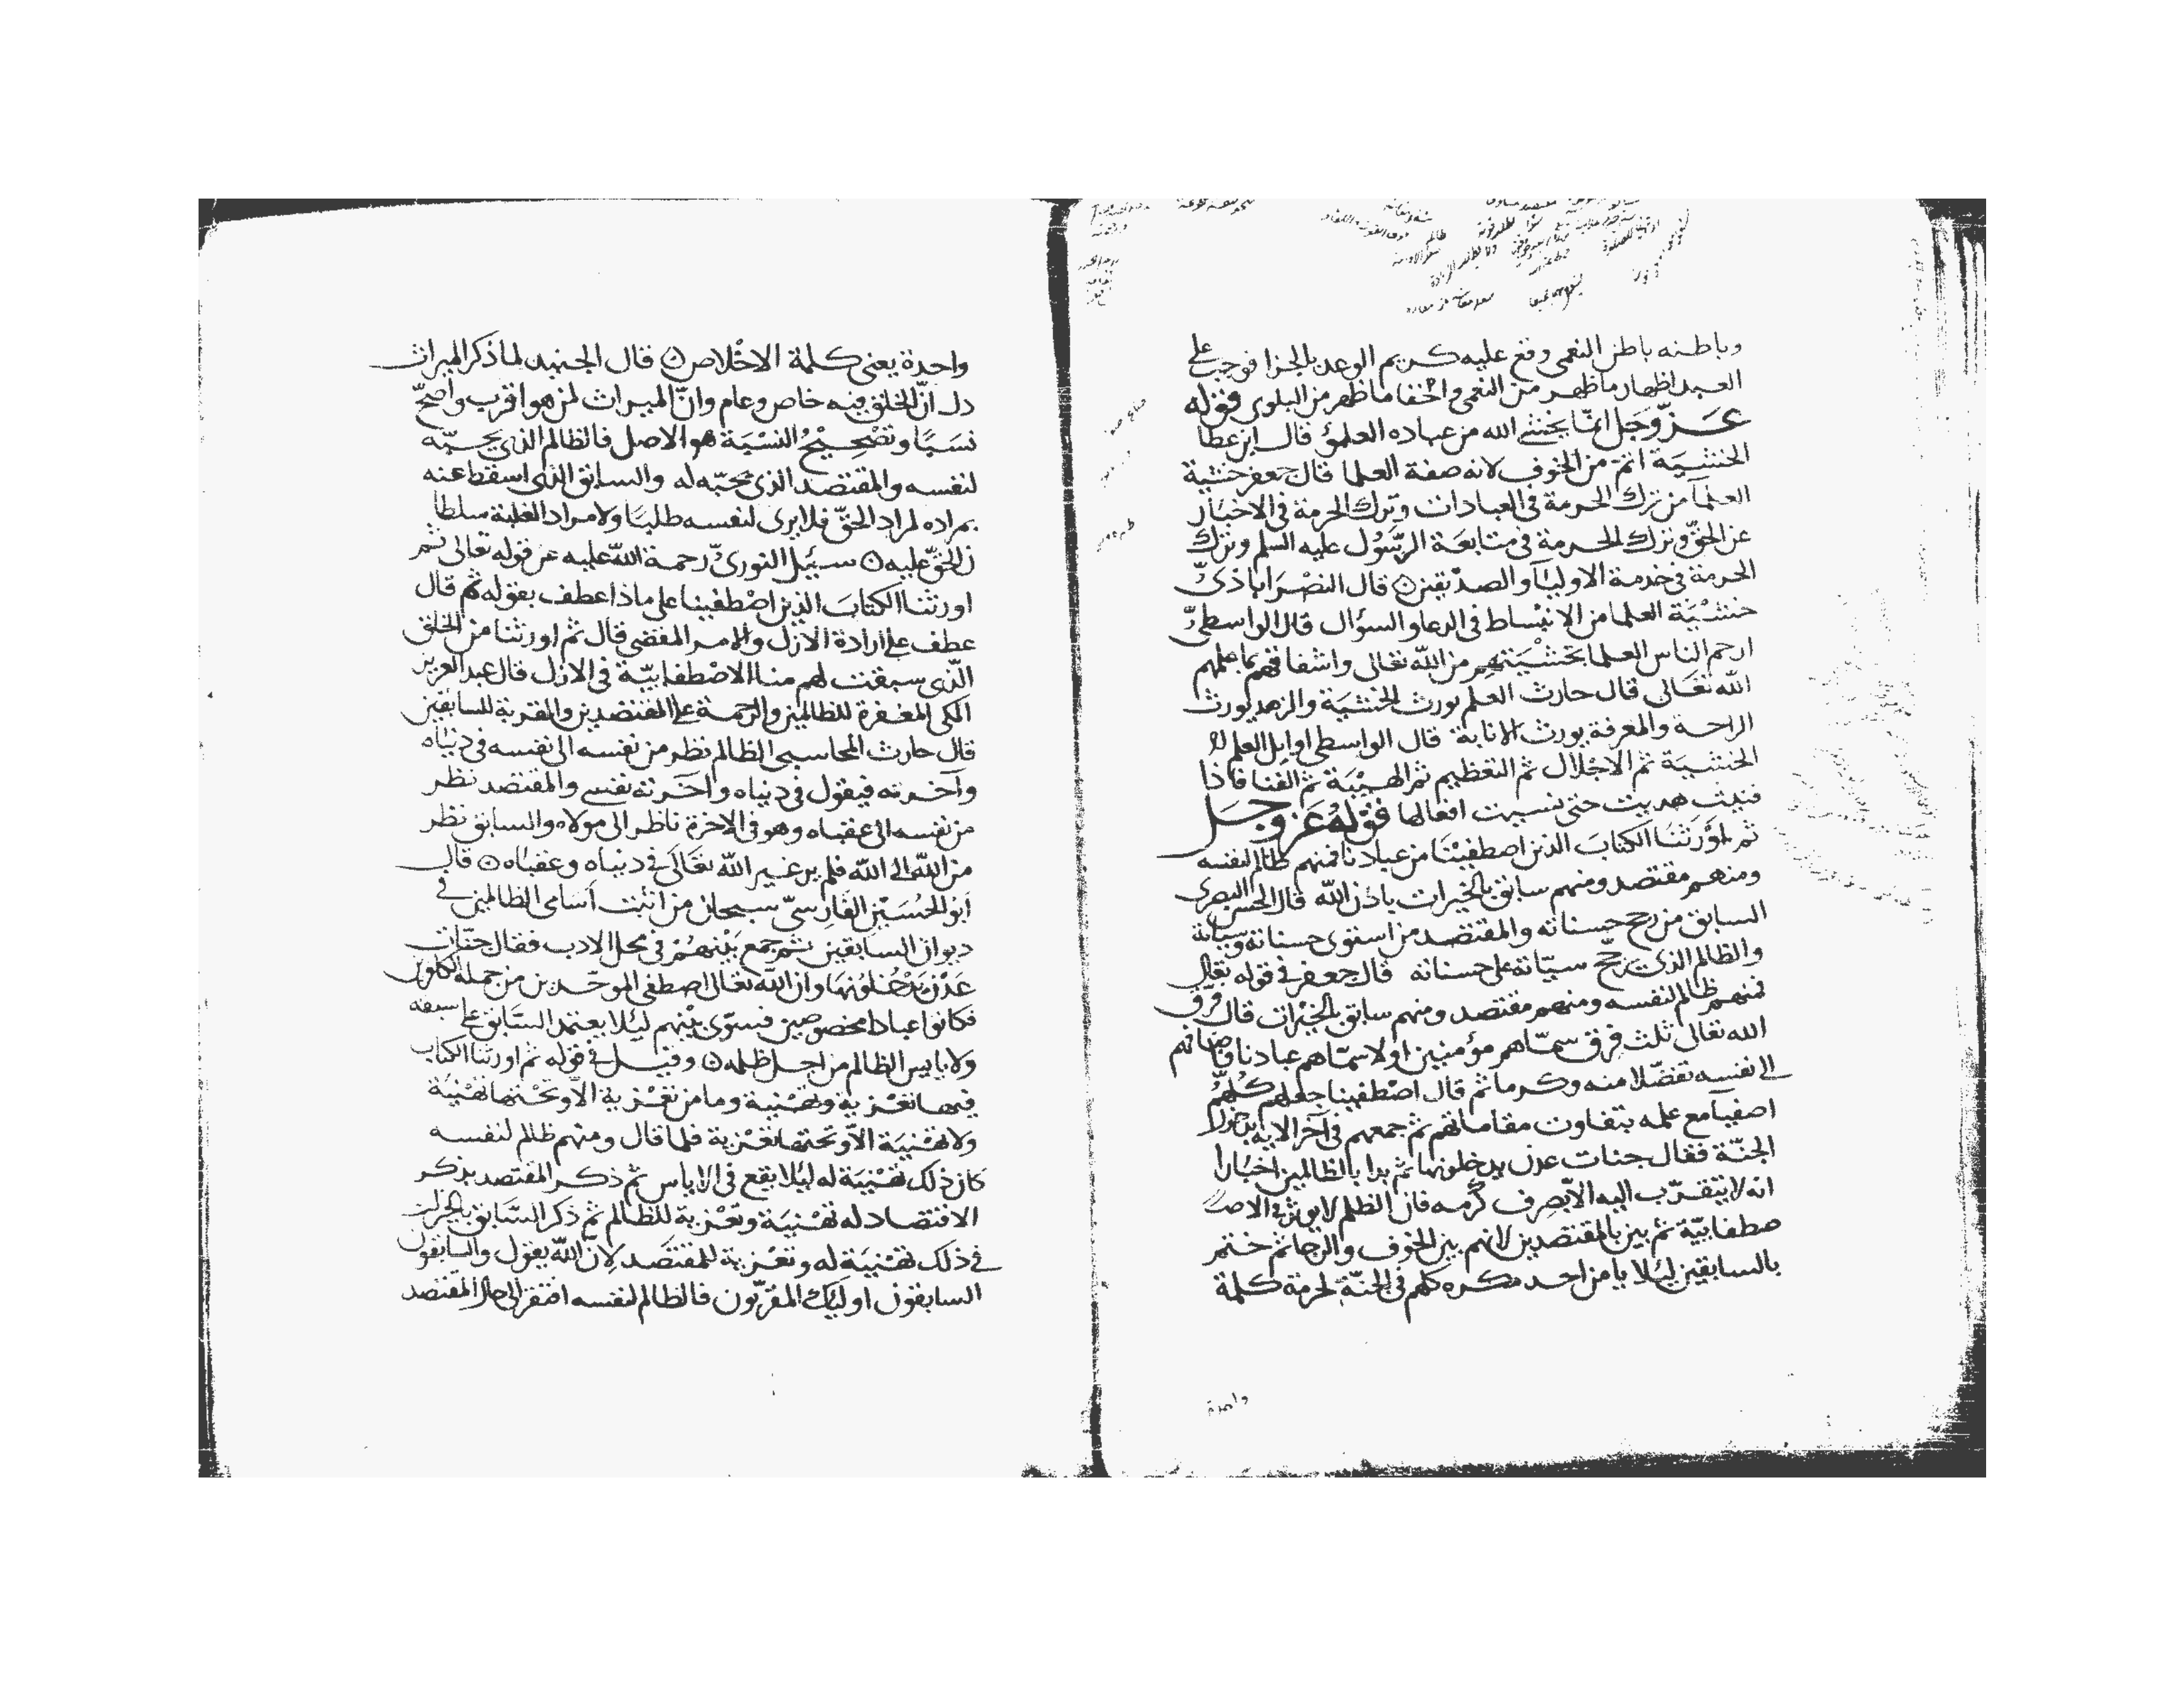 وباطنه باطن النعمى وقع عليه كريم الوعد بالجزا فوجب على
العبد اظهار ما ظهر من النعمى واخفا ما ظهر من البلوى قوله
عز وجل انما يخشى الله من عباده العلمؤ قال ابن عطا
الخشية اتم من الخوف لانه صفة العلما قال جعفر خشية
العلمآ من ترك الحرمة فى العبادات وترك الحرمة فى الاخبار
عن الحق وترك الحرمة فى متابعة الرسول عليه السلم وترك
الحرمة فى خدمة الاوليآ والصديقين قال النصراباذى
خشية العلما من الانبساط فى الدعا والسؤال قال الواسطى
ارحم الناس العلما بخشيتهم من الله تعالى واشفاقهم مما علمهم
الله تعالى قال حارث العلم يورث الخشية والزهد يورث
الراحة والمعرفة يورث الانابة قال الواسطى اوايل العلم
الخشية ثم الاجلال ثم التعظيم ثم الهيبة ثم الفنا فاذا
فنيت هديت حتى نسيت افعالها قوله عز وجل
ثم اورثنا الكتاب الذين اصطفينا من عبادنا فمنهم ظالم لنفسه
ومنهم مقتصد ومنهم سابق بالخيرات باذن الله قال الحسن البصرى
السابق من رجح حسناته والمقتصد من استوى حسناته وسيآته
والظالم الذى يرجح سيآته على حسناته قال جعفر فى قوله تعالى
فمنهم ظالم لنفسه ومنهم مقتصد ومنهم سابق بالخيرات قال فرق
الله تعالى ثلث فرق سماهم مؤمنين اولا سماهم عبادنا واضافهم
الى نفسه تفضلا منه وكرما ثم قال اصطفينا جعلهم كلهم
اصفيآ مع علمه بتفاوت مقاماتهم ثم جمعهم فى آخر الاية بدخول
الجنة فقال جنات عدن يدخلونها ثم بدا بالظالمين اخبارا
انه لا يتقرب اليه الا بصرف كرمه فان الظلم لا يوثر فى الاص
صطفايية ثم بين بالمقتصدين لانهم بين الخوف والرجا ثم ختم
بالسابقين ليلا يامن احد مكره كلهم فى الجنة لحرمة كلمة
واحدة
واحدة يعنى كلمة الاخلاص قال الجنيد لما ذكر الميراث
دل ان الخلق فيه خاص وعام وان الميراث لمن هو اقرب واصح
نسبا وتصحيح النسبة هو الاصل فالظالم الذى يحبه
لنفسه والمقتصد الذى يحبه له والسابق الذى اسقط عنه
بمراده لمراد الحق فلا يرى لنفسه طلبا ولا مراد الغلبة سلطا
ن الحق عليه سئيل النورى رحمة الله عليه عن قوله تعالى ثم
اورثنا الكتاب الذين اصطفينا على ماذا عطف بقوله ثم قال
عطف على ارادة الازل والامر المقضى قال ثم اورثنا من الخلق
الذى سبقت لهم منا الاصطفايية فى الازل قال عبد العزيز
المكى المغفرة للظالمين والرحمة على المقتصدين والقربة للسابقين
قال حارث المحاسبى الظالم نظر من نفسه الى نفسه فى دنياه
وآخرته فيقول فى دنياه وآخرته نفسى والمقتصد نظر
من نفسه الى عقباه وهو فى الاخرة ناظر الى مولاه والسابق نظر
من الله الى الله فلم ير غير الله تعالى فى دنياه وعقباه قال
ابو الحسين الفارسى سبحان من اثبت اسامى الظالمين فى
ديوان السابقين ثم جمع بينهم فى محل الادب فقال جنات
عدن يدخلونها وان الله تعالى اصطفى الموحدين من جملة الكافرين
فكانوا عبادا مخصوصين فسوى بينهم ليلا يعتمد السابق على سبقه
ولا يايس الظالم من اجل ظلمه وقيل فى قوله ثم اورثنا الكتاب
فيها تعزية وتهنية وما من تعزية الا وتحتها تهنية
ولا تهنية الا وتحتها تعزية فلما قال ومنهم ظالم لنفسه
كان ذلك تهنية له ليلا يقع فى الاياس ثم ذكر المقتصد بذكر
الاقتصاد له تهنية وتعزية للظالم ثم ذكر السابق بالخيرات
فى ذلك تهنية له وتعزية للمقتصد لان الله يقول والسابقون
السابقون اوليك المقربون فالظالم لنفسه افتقر الى حال المقتصد